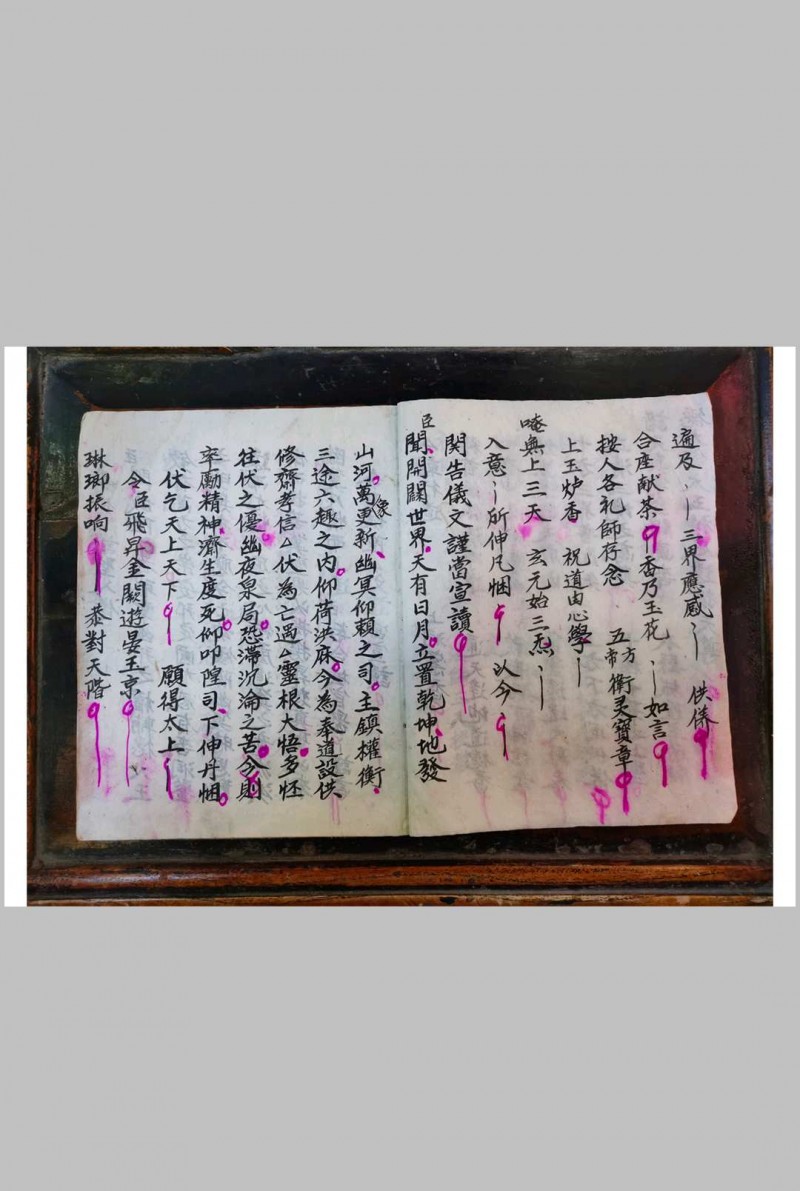 遍及〻三界應感〻 供養
合座献茶 香乃玉花〻如言
按人各礼師存念 五方帝衛灵寶章
上玉炉香 祝道由心學〻
唵無上三天 玄元始三炁〻
入意〻所伸凡悃 以今
関告儀文謹當宣讀
臣聞開闢世界天有日月立置乾坤地發
山河萬象更新幽冥仰賴之司主鎮權衡
三途六趣之内仰荷洪庥今為奉道設供
修齋孝信△伏為亡過△靈根大悟多怌
往伏之優幽夜泉局恐滯沉淪之苦分則
率勵精神濟生度死仰叩隍司下伸丹悃
伏乞天上天下 願得太上
令臣飛昇金闕遊晏玉京
琳瑯振响 恭對天階